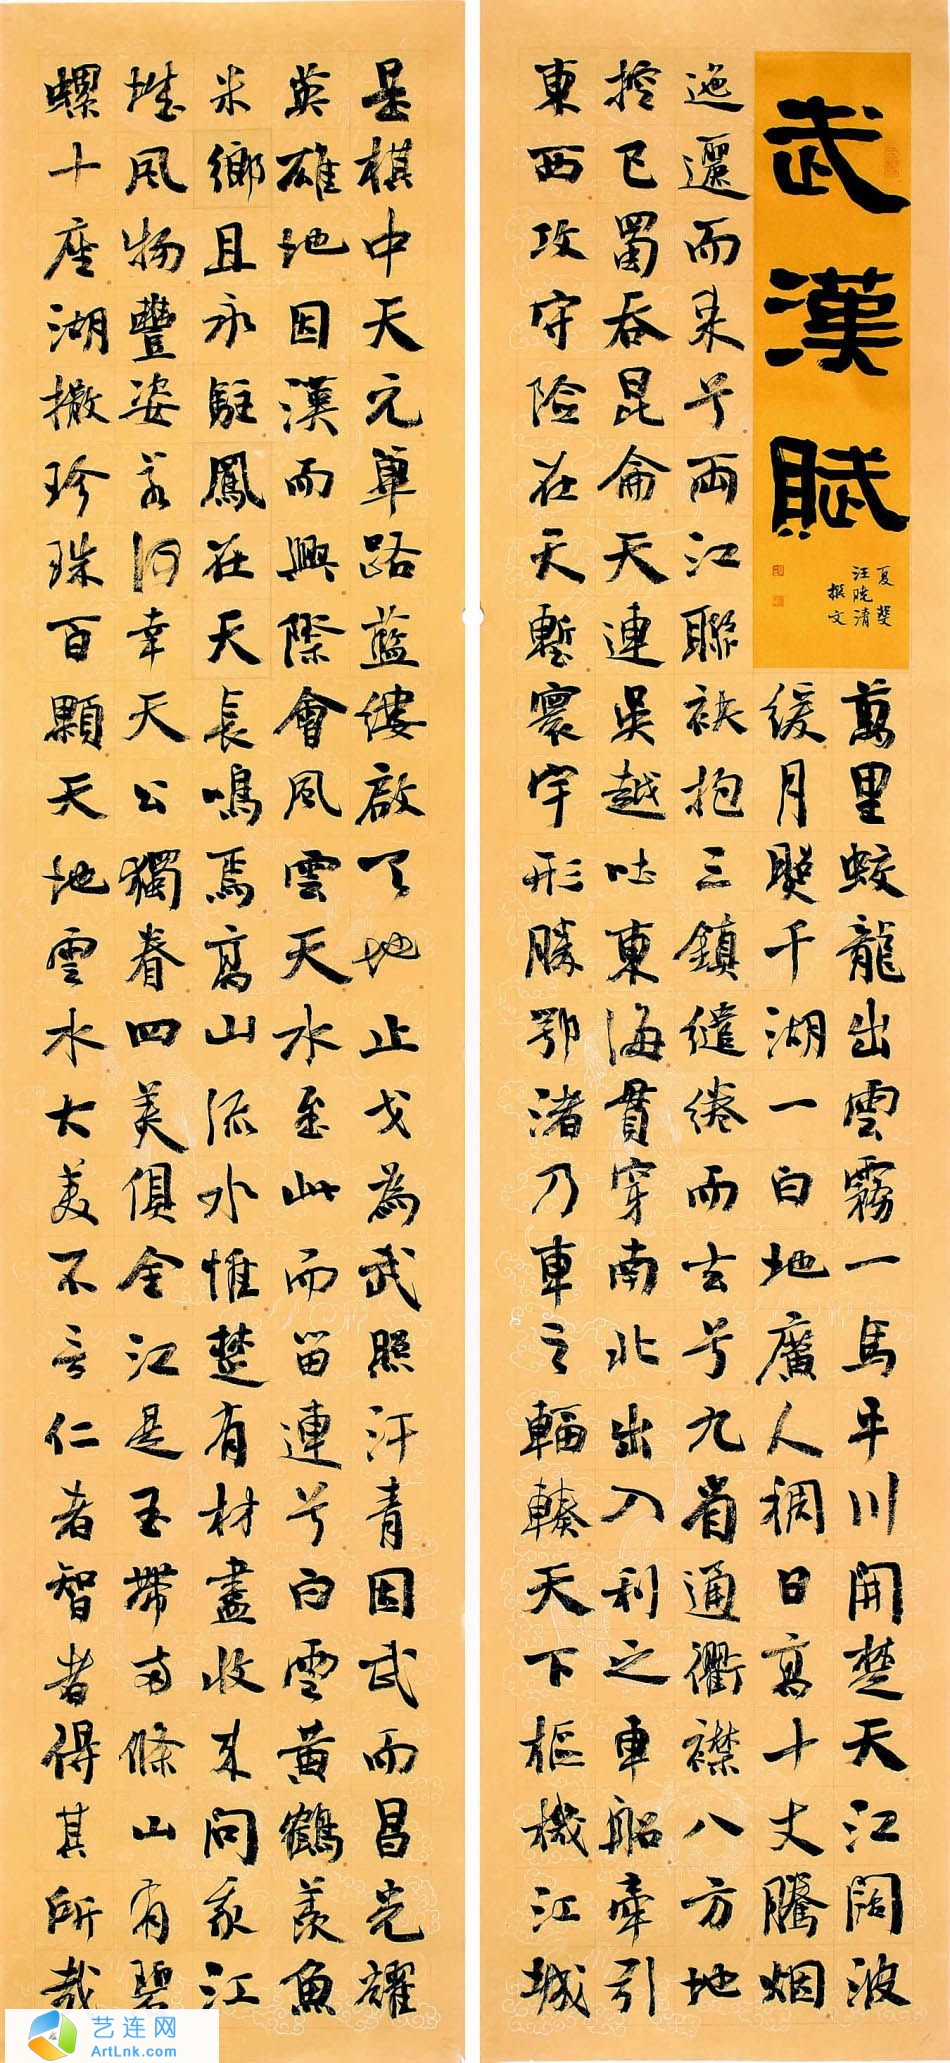 武漢賦
夏斐
汪曉清
撰文
萬里蛟龍出雲霧一馬平川開楚天江闊波
緩月照千湖一白地廣人稠日高十丈騰烟
迤邐而来兮兩江聯袂抱三鎮繾綣而去兮九省通衢襟八方地
控巴蜀吞昆侖天連吳越吐東海貫穿南北出入利之車船牽引
東西攻守險在天塹寰宇形勝鄂渚乃車之輻輳天下樞機江城
是棋中天元篳路藍縷啟天地止戈為武照汗青因武而昌光耀
英雄地因漢而興際會風雲天水至此而留連兮白雲黃鶴羨魚
米鄉且永駐鳳在天長鳴焉高山流水惟楚有材盡收来問我江
城風物豐姿若何幸天公獨眷四美俱全江是玉帶两條山有碧
螺十座湖撒珍珠百顆天地雲水大美不言仁者智者得其所哉
艺连网
ArtLnk.com